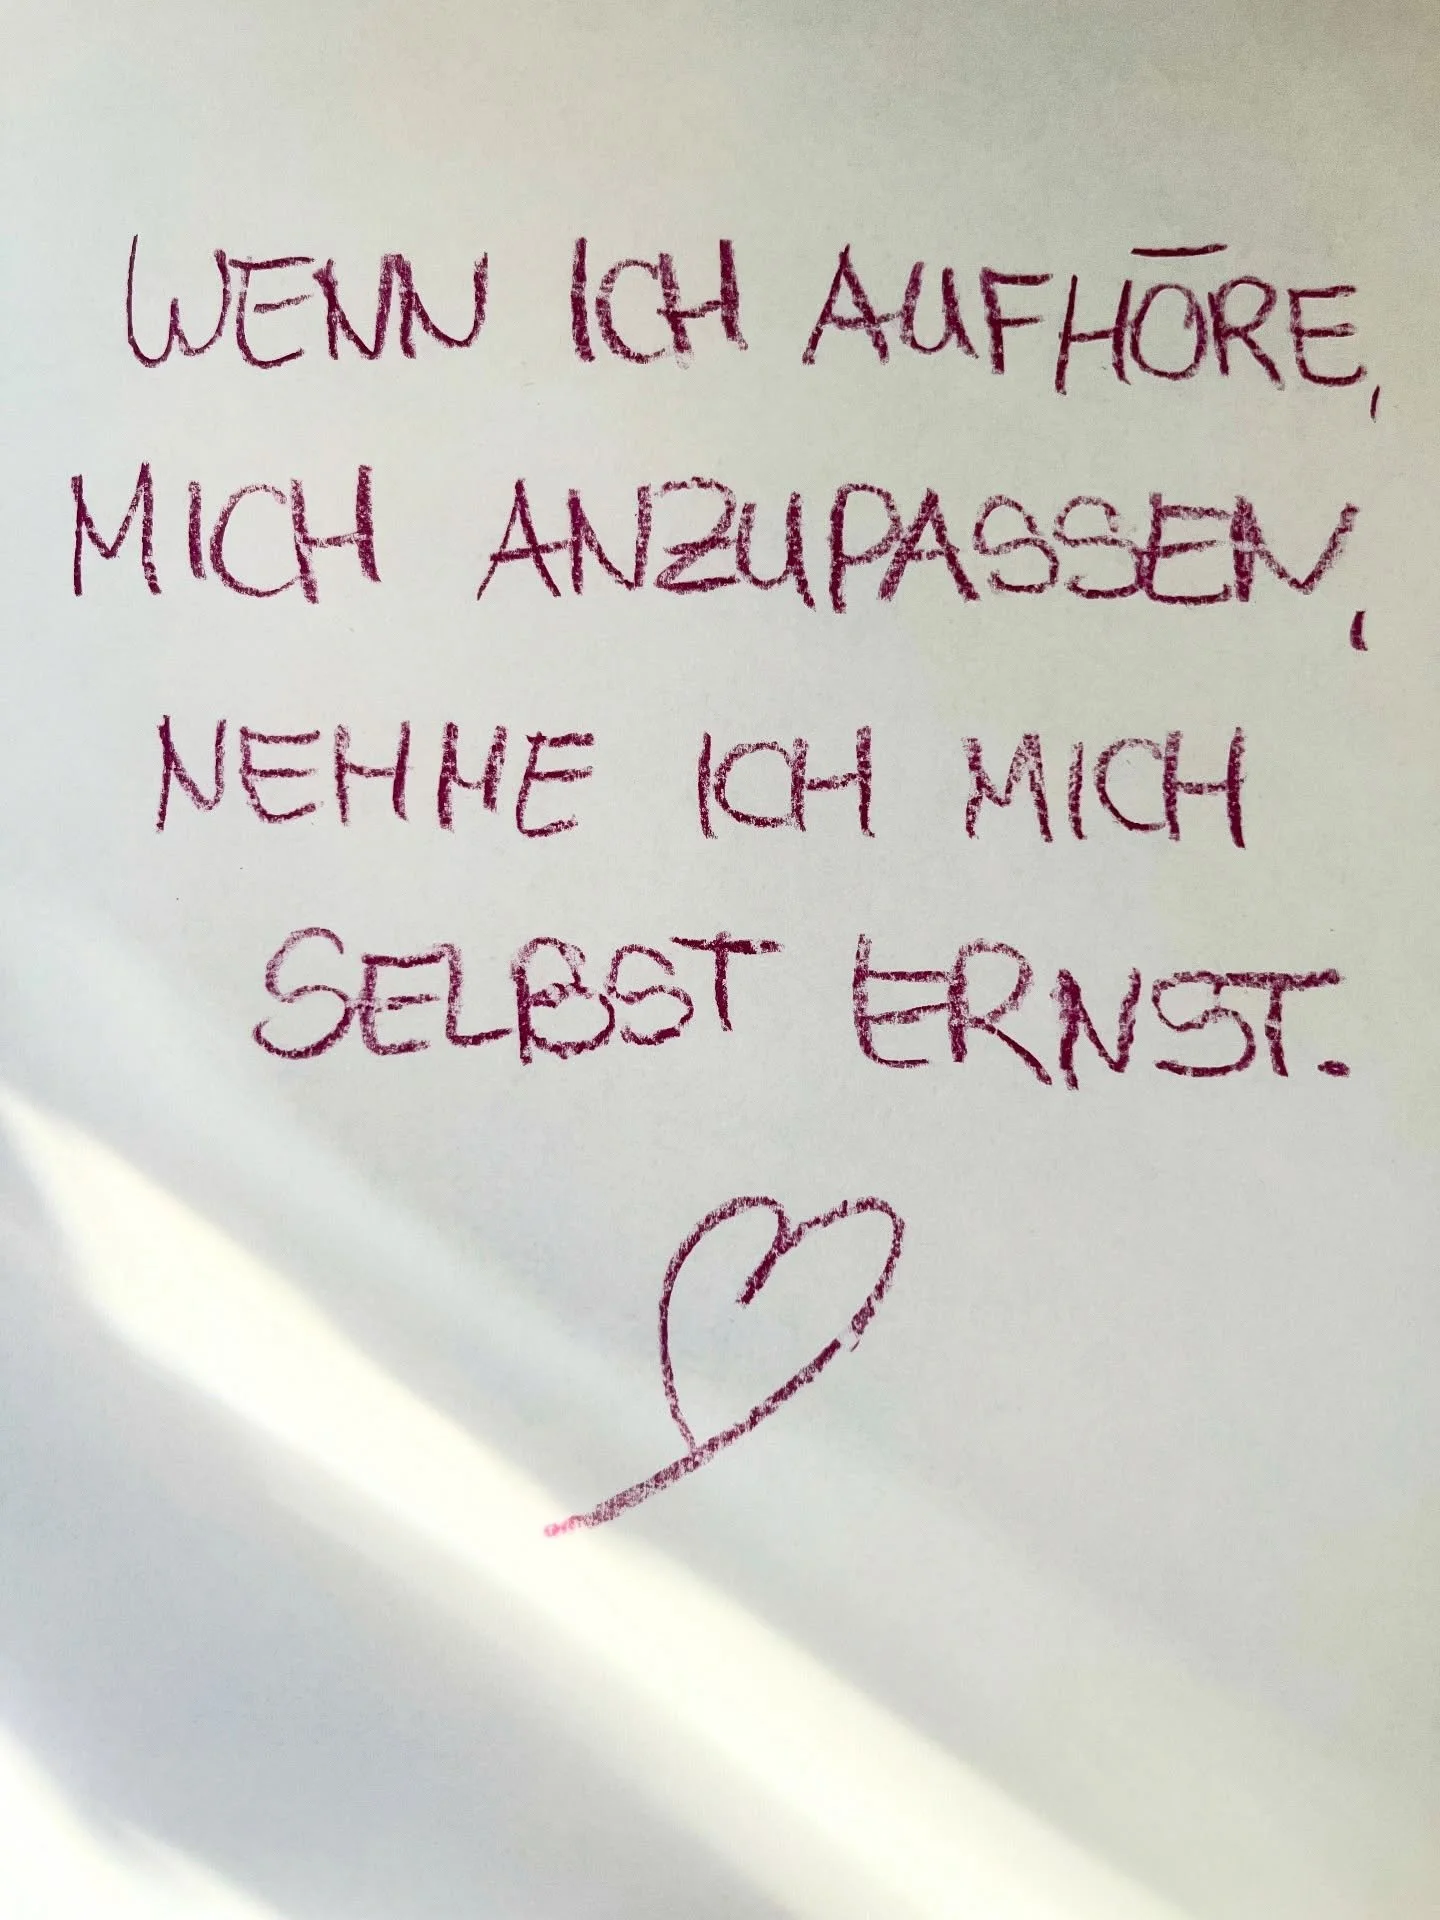 WENN ICH AUFHÖRE,
MICH ANZUPASSEN,
NEHME ICH MICH
SELBST ERNST.